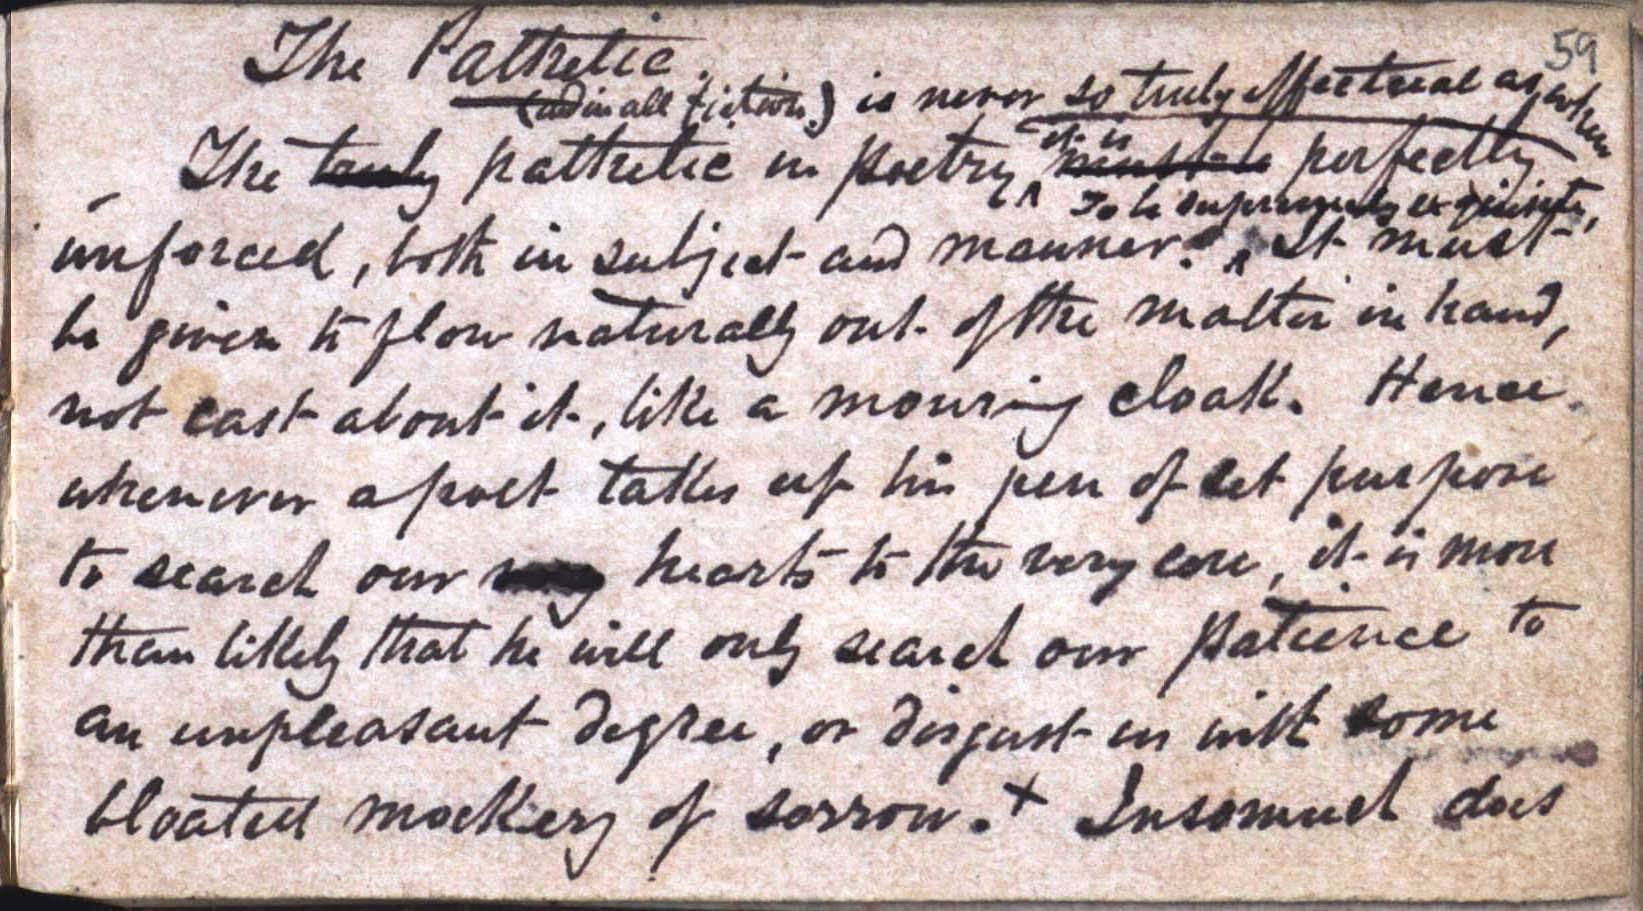 59
The Pathetic.
(and in all fiction.) is never so truly effectual as when
The truly pathetic in poetry ^ it is must be perfectly
To be supremely exquisite,
unforced, both in subject and manner. ^ It must
be given to flow naturally out of the matter in hand,
not cast about it, like a mouring cloak. Hence
whenever a poet takes up his pen of set purpose
to search our very hearts to the very core, it is more
than likely that he will only search our patience to
an unpleasant degree, or disgust us with some
bloated mockery of sorrow.+ Insomuch does